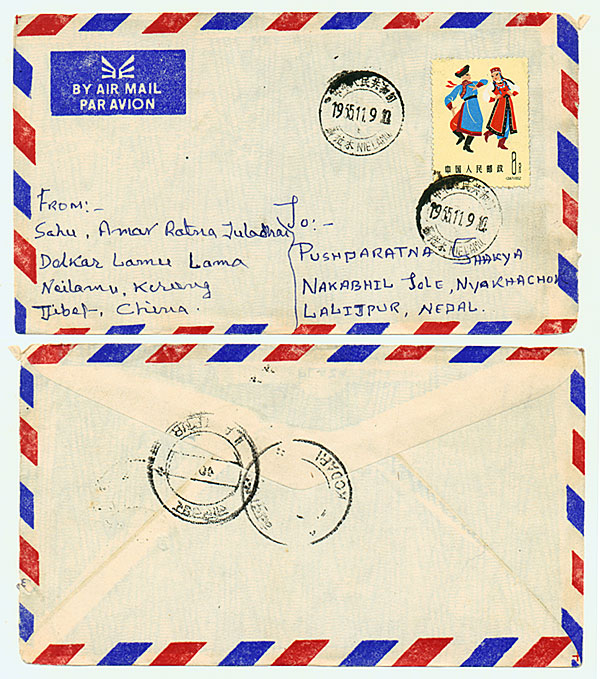 BY AIR MAIL
PAR AVION
1955.11.9
NIELAMU
中国人民邮政
8分
1955.11.9
From:-
Sahu, Amar Ratna Tuladhar
Dolkar Lamu Lama
Neilamu, Kerong
Tibet, China.
To:-
PUSHPARATNA SHAKYA
NAKABHIL TOLE, NYAKHACHOK
LALITPUR, NEPAL.
KODARI